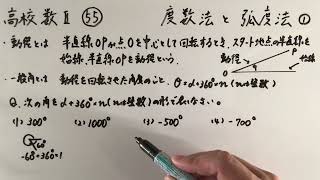 高校数Ⅱ 55 度数法と弧度法①
・動径とは 半直線OPが点Oを中心として回転するとき、スタート地点の半直線を
始線、半直線OPを動径という。
動径
P
O
始線
・一般角とは 動径を回転させた角度のこと。θ=α+360°×n(nは整数)
Q. 次の角をα+360°×n(nは整数)の形で表しなさい。
(1) 300° (2) 1000° (3) -500° (4) -700°
60°
-60°+360°×1